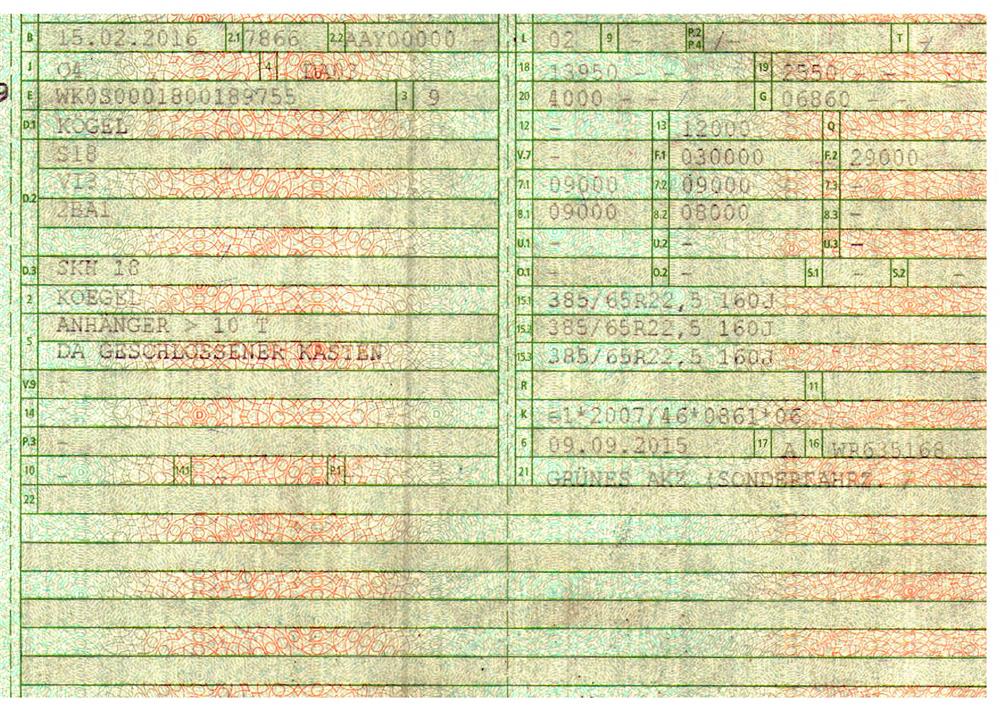 B 15.02.2016 2.1 7866 2.2 AAY00000 -
J O4 4 DANJ
E WK0S0001800189755 3 9
D.1 KÖGEL
S18
D.2 VI3
2BA1
D.3 SKH 18
2 KOEGEL
5 ANHÄNGER > 10 T
DA GESCHLOSSENER KASTEN
V.9 -
14 -
P.3 -
10 - 14.1 P.1
22
L 02 9 - P.2 P.4 /- T -
18 13950 - - 19 2550 - -
20 4000 - - G 06860 - -
12 - 13 12000 Q
V.7 - F.1 030000 F.2 29000
7.1 09000 7.2 09000 7.3 -
8.1 09000 8.2 08000 8.3 -
U.1 - U.2 - U.3 -
O.1 - O.2 - S.1 - S.2 -
15.1 385/65R22,5 160J
15.2 385/65R22,5 160J
15.3 385/65R22,5 160J
R 11
K e1*2007/46*0861*06
6 09.09.2015 17 A 16 WR635168
21 GRÜNES AKZ (SONDERFAHRZ. /